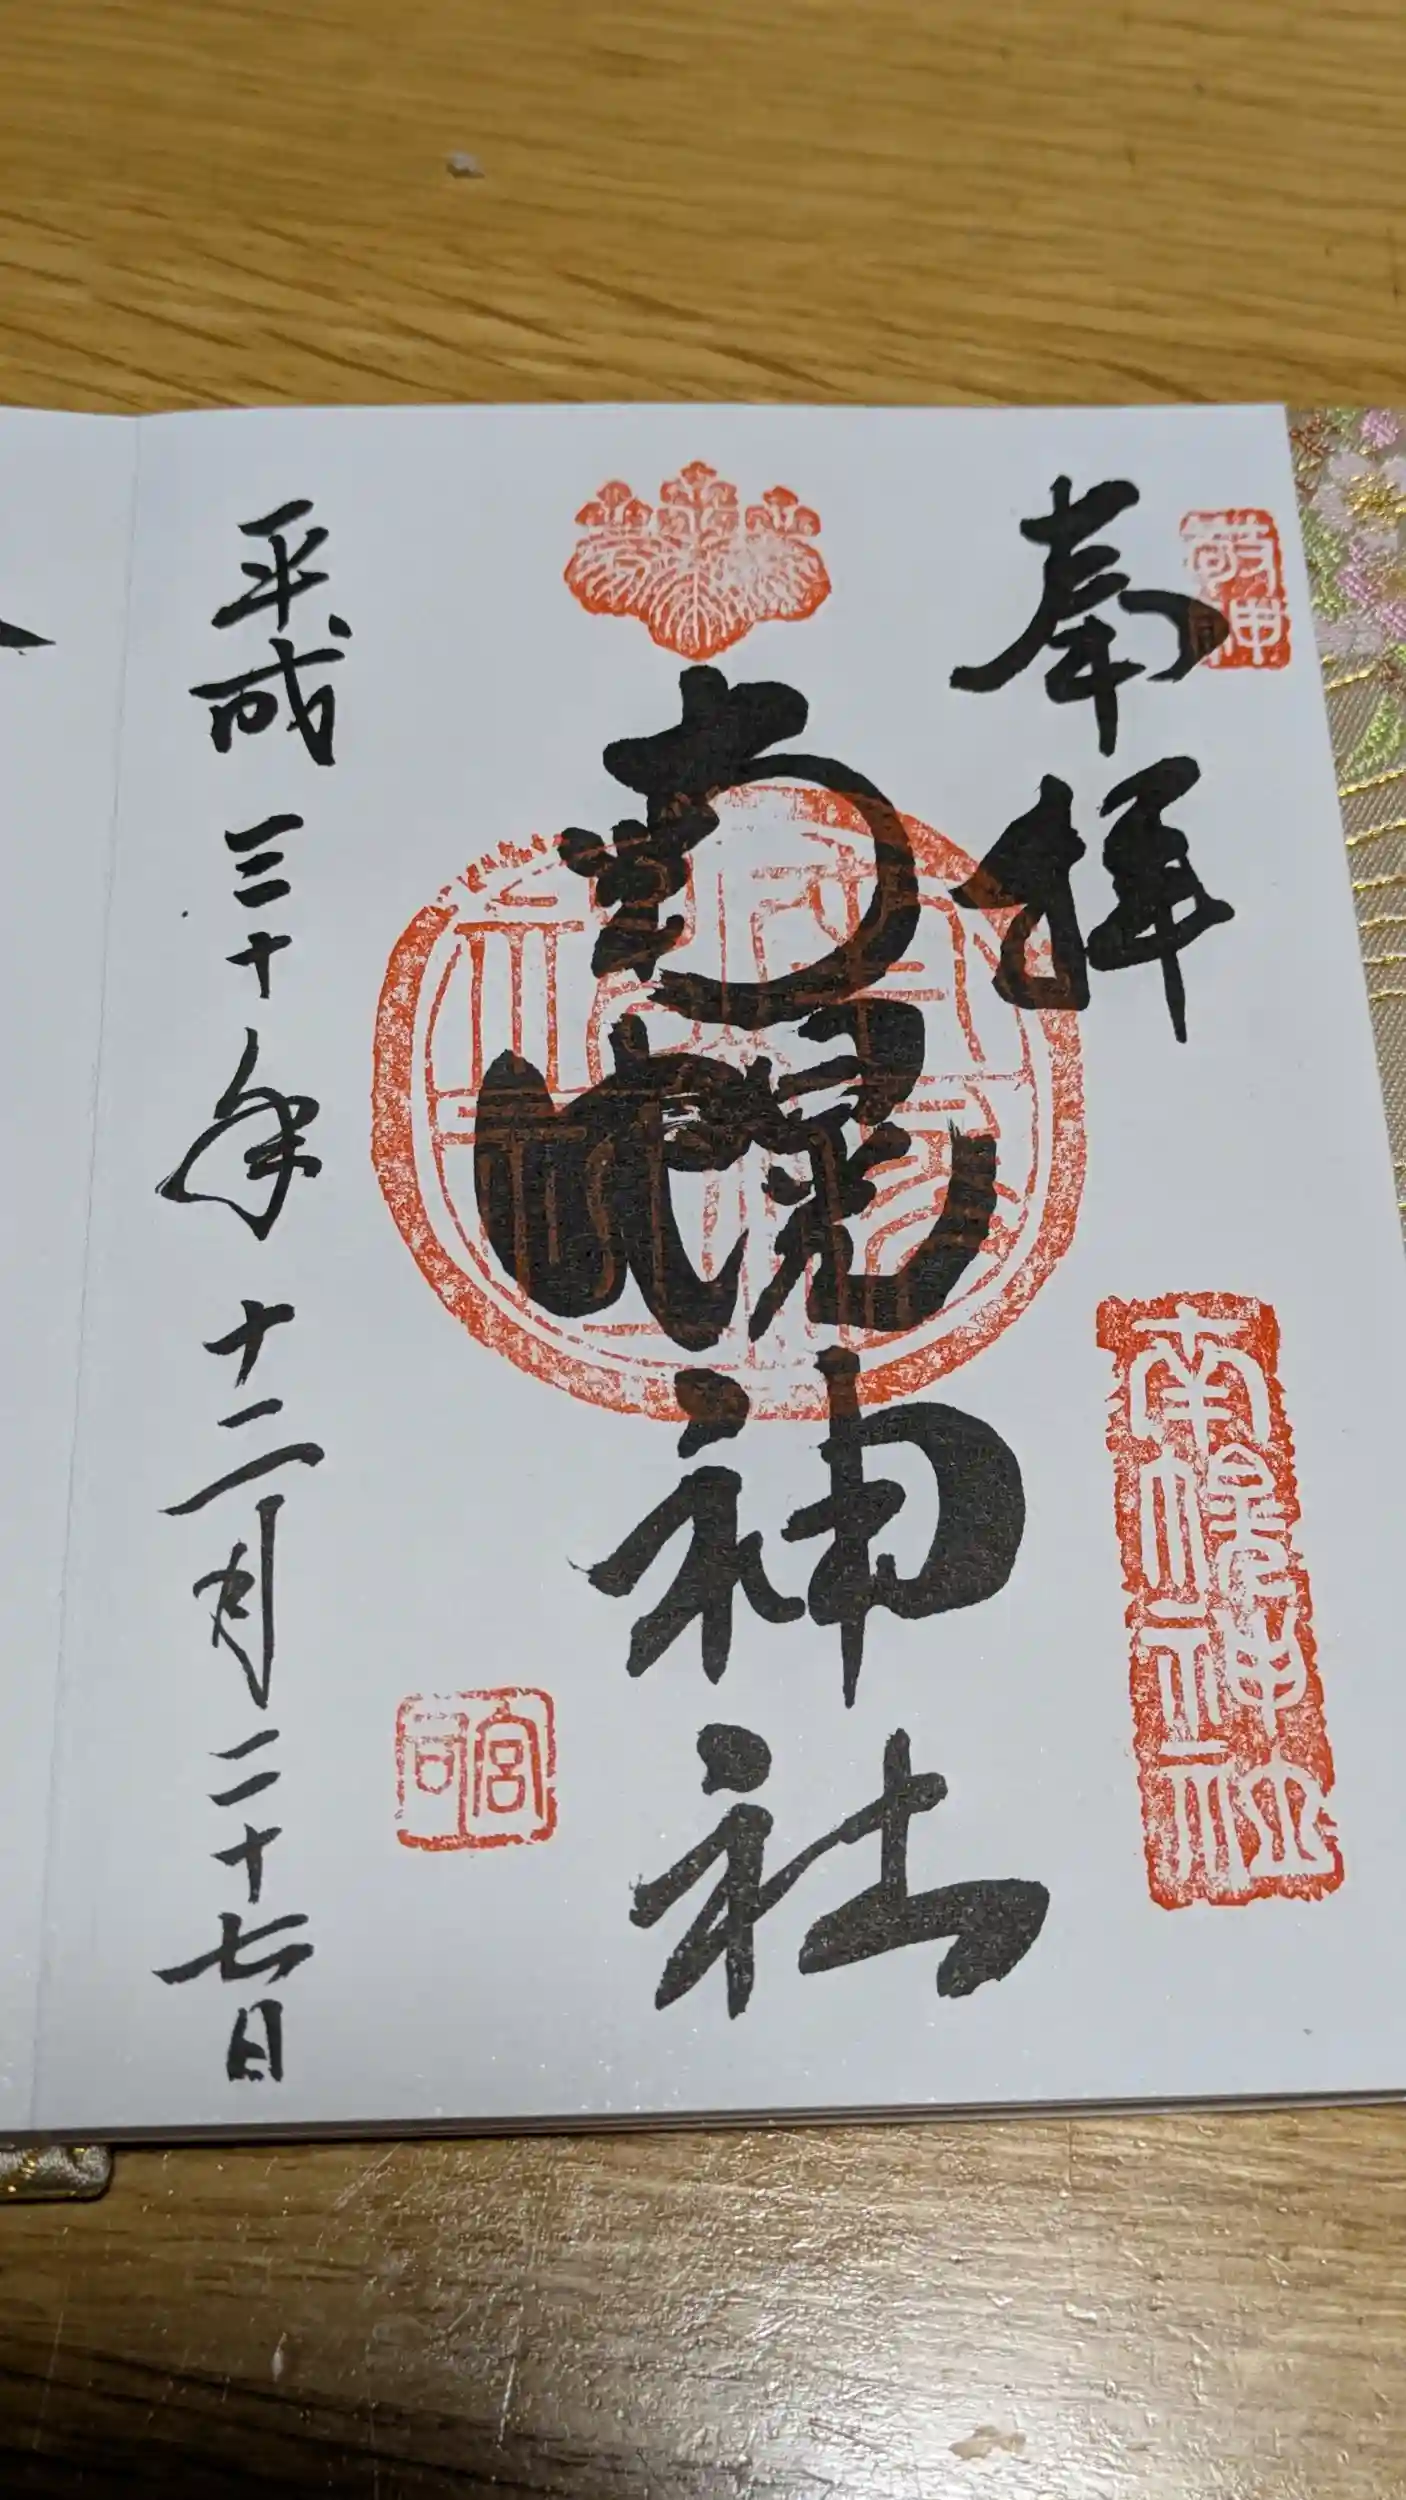 敬神
奉拝
南幌神社
南幌神社
宮司
平成三十年十二月二十七日